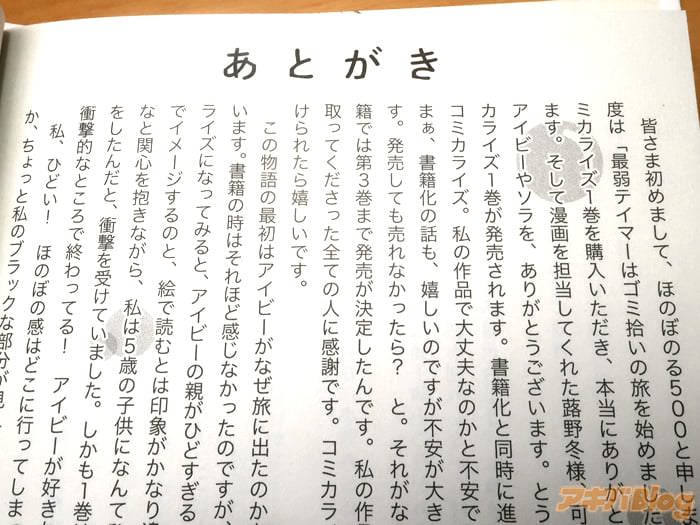 あとがき
皆さま初めまして、ほのぼのる500と申し
度は「最弱テイマーはゴミ拾いの旅を始めまし
ミカライズ1巻を購入いただき、本当にありが
ます。そして漫画を担当してくれた蕗野冬様、可
アイビーやソラを、ありがとうございます。とう
カライズ1巻が発売されます。書籍化と同時に進
コミカライズ。私の作品で大丈夫なのかと不安で
まぁ、書籍化の話も、嬉しいのですが不安が大き
す。発売しても売れなかったら? と。それがな
籍では第3巻まで発売が決定したんです。私の作
取ってくださった全ての人に感謝です。コミカラ
けられたら嬉しいです。
この物語の最初はアイビーがなぜ旅に出たのか
います。書籍の時はそれほど感じなかったのですが、
ライズになってみると、アイビーの親がひどすぎる
でイメージするのと、絵で読むとは印象がかなり違
なと関心を抱きながら、私は5歳の子供になんて
をしたんだと、衝撃を受けていました。しかも1巻
衝撃的なところで終わってる! アイビーが好き
私、ひどい! ほのぼの感はどこに行ってしま
か、ちょっと私のブラックな部分が見
アキバBlog